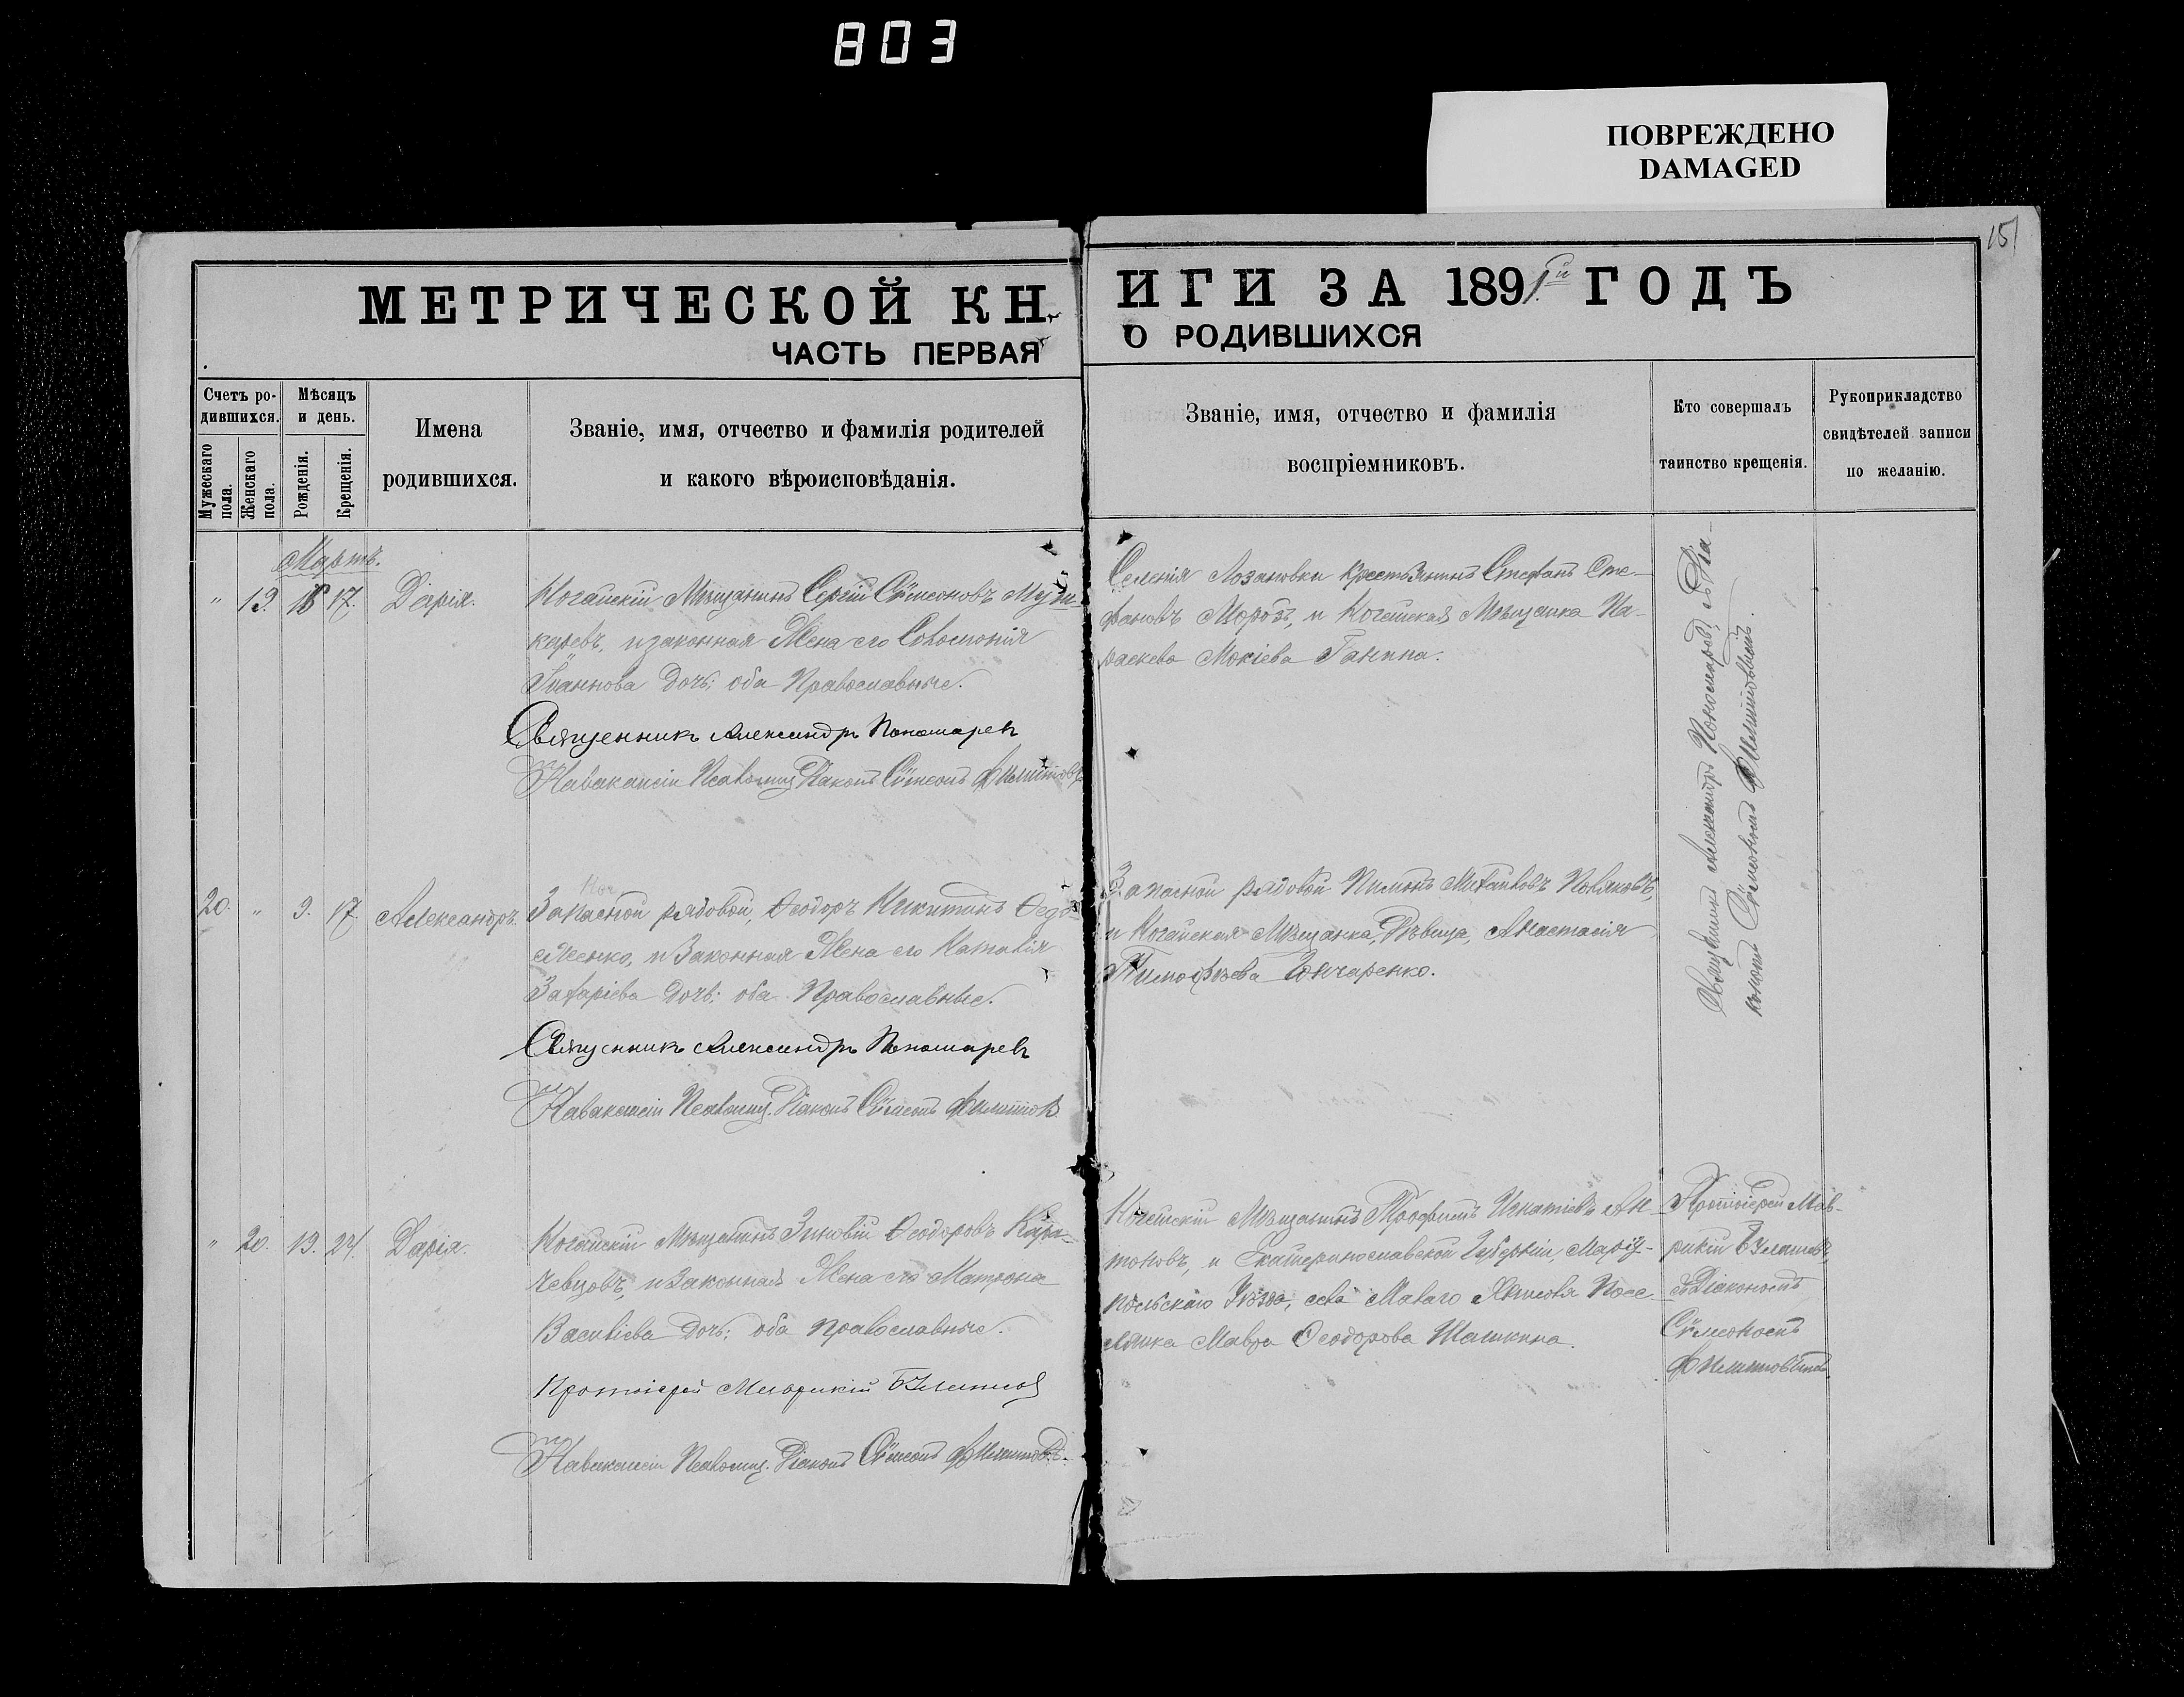 803
ПОВРЕЖДЕНО
DAMAGED
151
МЕТРИЧЕСКОЙ КНИГИ ЗА 1891й ГОДЪ
ЧАСТЬ ПЕРВАЯ О РОДИВШИХСЯ
Счетъ ро-
дившихся.
Мужескаго пола.
Женскаго пола.
Мѣсяцъ
и день.
Рожденія.
Крещенія.
Имена
родившихся.
Званіе, имя, отчество и фамилія родителей
и какого вѣроисповѣданія.
Званіе, имя, отчество и фамилія
воспріемниковъ.
Кто совершалъ
таинство крещенія.
Рукоприкладство
свидѣтелей записи
по желанію.
Мартъ.
" 19. 17. Дарія.
Ногайскій Мѣщанинъ Сергій Сѵмеоновъ
и законная Жена его Соломонія
Іоаннова дочь; оба Православные.
Священникъ Александръ Пономаревъ
На вакансіи Псаломщ. Діаконъ Сѵмеонъ Филиповъ
Селенія Лозановки Крестьянинъ Стефанъ Сте-
фановъ Морозъ, и Ногайская Мѣщанка Па-
раскева Мокіева Ганина.
Священникъ Александръ Пономаревъ, съ Діа-
кономъ Сѵмеономъ
20. " 9. 17. Александръ.
Запасной рядовой, Ѳеодоръ Никитинъ Ѳедо-
сѣенко, и Законная Жена его Наталія
Захаріева дочь; оба Православные.
Священникъ Александръ Пономаревъ
На вакансіи Псаломщ. Діаконъ Сѵмеонъ Филиповъ
Запасной рядовой Пименъ Михаиловъ Поляковъ,
и Ногайская Мѣщанка, Дѣвица, Анастасія
Тимофѣева Гончаренко.
" 20. 19. 24. Дарія.
Ногайскій Мѣщанинъ Зиновій Ѳеодоровъ Кара-
чевцовъ, и Законная Жена его Матрона
Василіева дочь; оба православные.
Протоіерей
На вакансіи Псаломщ. Діаконъ Сѵмеонъ Филиповъ.
Ногайскій Мѣщанинъ Трофимъ Игнатіевъ Ан-
тоновъ, и Екатеринославской Губерніи, Маріу-
польскаго Уѣзда, села Малаго Янисоля Посе-
лянка Мавра Ѳеодорова Шашкина.
Протоіерей Мав-
рикій
съ Діакономъ
Сѵмеономъ